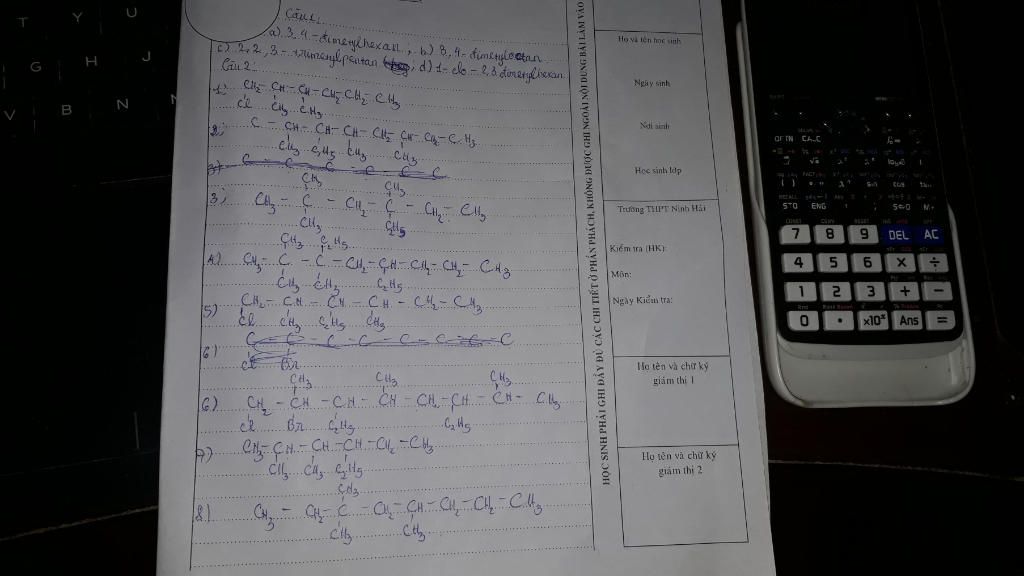 Câu 1.
a) 3,4 - đimetylhexan, b) 3,4 - đimetyloctan
c) 2,2,3 - trimetylpentan, d) 1 - clo - 2,3 đimetylhexan
Câu 2:
1. CH2 - CH - CH - CH2 - CH2 - CH3
Cl CH3 CH3
2. C - CH - CH - CH - CH2 - CH - CH2 - CH3
CH3 C2H5 CH3 CH3
3) C - C - C - C - C - C
CH3 CH3
3) CH3 - C - CH2 - C - CH2 - CH3
CH3 C2H5
CH3 C2H5
4) CH3 - C - C - CH2 - CH - CH2 - CH2 - CH3
CH3 CH3 C2H5
5) CH2 - CH - CH - CH - CH2 - CH3
Cl CH3 C2H5 CH3
6) C - C - C - C - C - C - C - C
Cl Br
CH3 CH3 CH3
6) CH2 - CH - CH - CH - CH2 - CH - CH - CH3
Cl Br C2H5 C2H5
7) CH3 - CH - CH - CH - CH2 - CH3
CH3 CH3 C2H5
CH3
8) CH3 - CH2 - C - CH2 - CH - CH2 - CH2 - CH3
CH3 CH3
HỌC SINH PHẢI GHI ĐẦY ĐỦ CÁC CHI TIẾT Ở PHẦN PHÁCH, KHÔNG ĐƯỢC GHI NGOÀI NỘI DUNG BÀI LÀM VÀO
Họ và tên học sinh
Ngày sinh
Nơi sinh
Học sinh lớp
Trường THPT Ninh Hải
Kiểm tra (HK):
Môn:
Ngày Kiểm tra:
Họ tên và chữ ký
giám thị 1
Họ tên và chữ ký
giám thị 2
T Y U
G H J
V B N
OPTN CALC
STO ENG ( ) S⇔D M+
7 8 9 DEL AC
4 5 6 × ÷
1 2 3 + −
0 • ×10ˣ Ans =